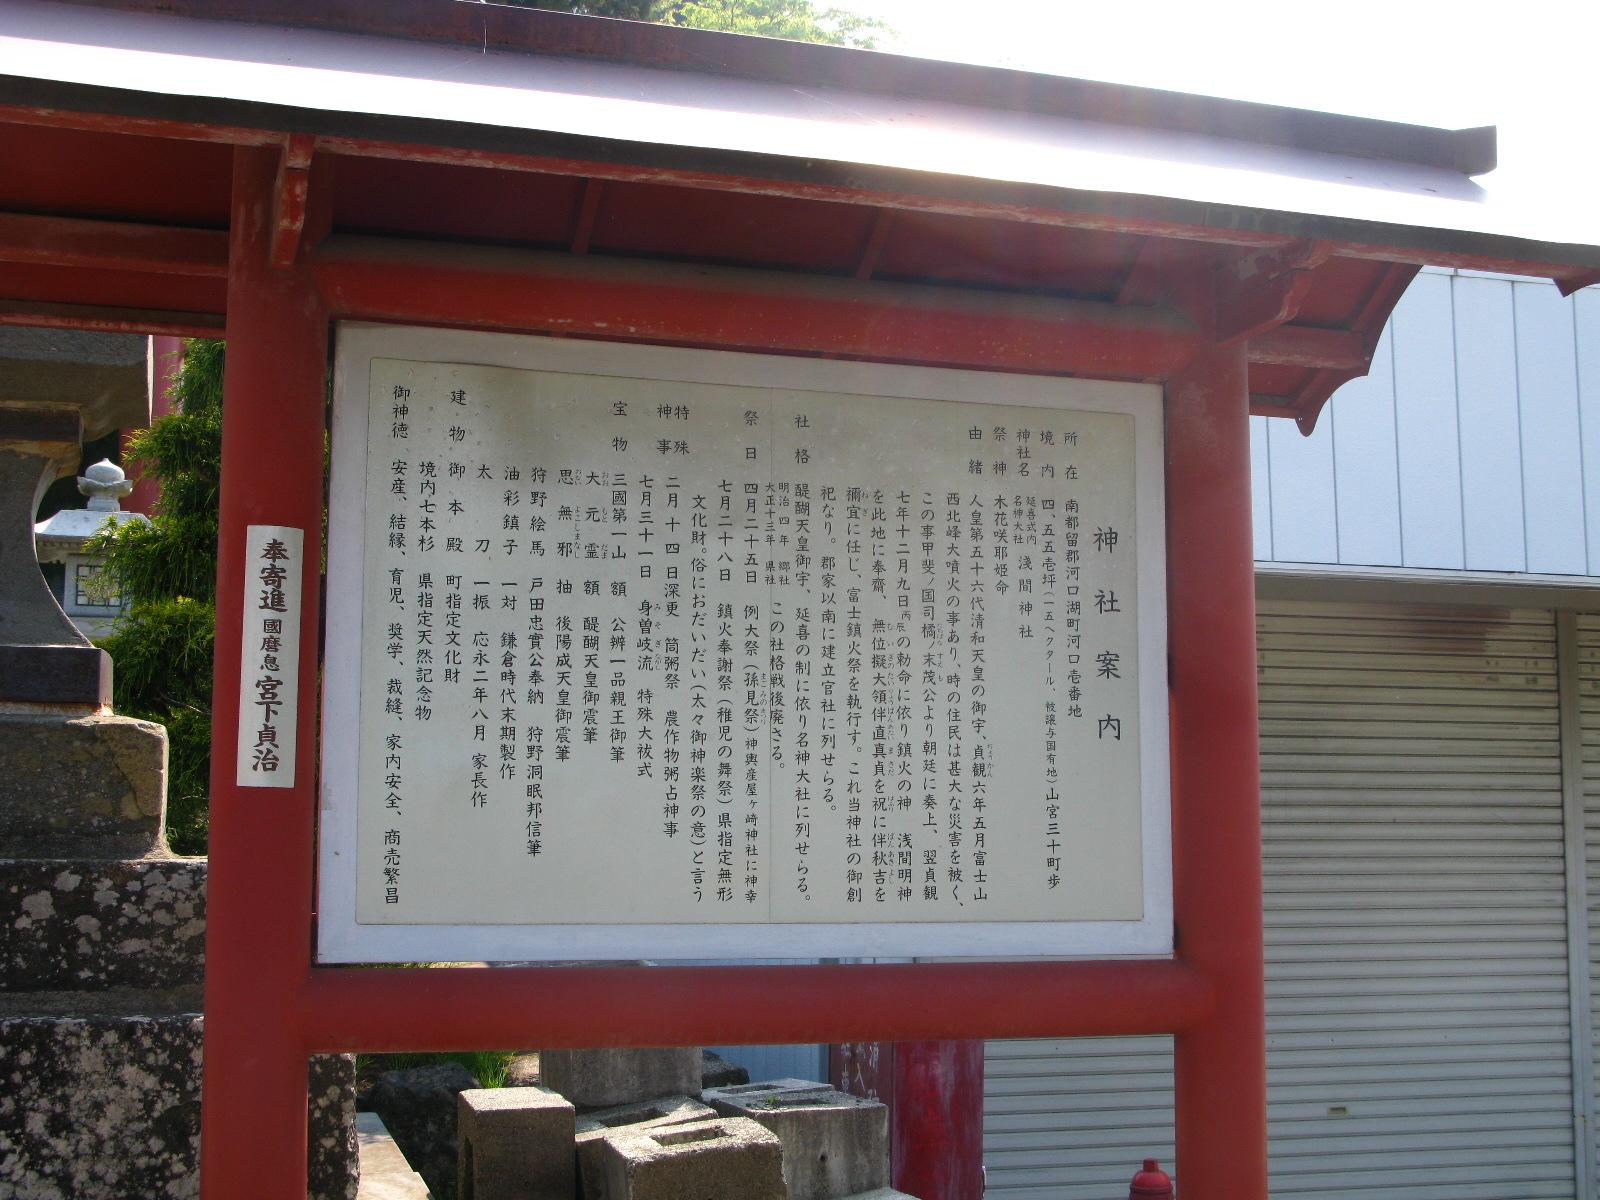 神社案内
所在 南都留郡河口湖町河口壱番地
境内 四、五五壱坪(一五ヘクタール、被譲与国有地)山宮三十町歩
神社名 延喜式内名神大社 浅間神社
祭神 木花咲耶姫命
由緒 人皇第五十六代清和天皇の御宇、貞観六年五月富士山
西北峰大噴火の事あり、時の住民は甚大な災害を被く、
この事甲斐ノ国司橘ノ末茂公より朝廷に奏上、翌貞観
七年十二月九日丙辰の勅命に依り鎮火の神 浅間明神
を此地に奉齋、無位擬大領伴直真貞を祝に伴秋吉を
禰宜に任じ、富士鎮火祭を執行す。これ当神社の御創
祀なり。郡家以南に建立官社に列せらる。
社格 醍醐天皇御宇、延喜の制に依り名神大社に列せらる。
明治四年 郷社
大正十三年 県社 この社格戦後廃さる。
祭日 四月二十五日 例大祭(孫見祭)神輿産屋ヶ崎神社に神幸
七月二十八日 鎮火奉謝祭(稚児の舞祭)県指定無形
文化財。俗におだいだい(太々御神楽祭の意)と言う
特殊神事 二月十四日深更 筒粥祭 農作物粥占神事
七月三十一日 身曽岐流 特殊大祓式
宝物 三國第一山 額 公辨一品親王御筆
大元霊 額 醍醐天皇御震筆
思無邪 抽 後陽成天皇御震筆
狩野絵馬 戸田忠實公奉納 狩野洞眠邦信筆
油彩鎮子 一対 鎌倉時代末期製作
太刀 一振 応永二年八月 家長作
建物 御本殿 町指定文化財
境内七本杉 県指定天然記念物
御神徳 安産、結縁、育児、奨学、裁縫、家内安全、商売繁昌
奉寄進 國磨息 宮下貞治